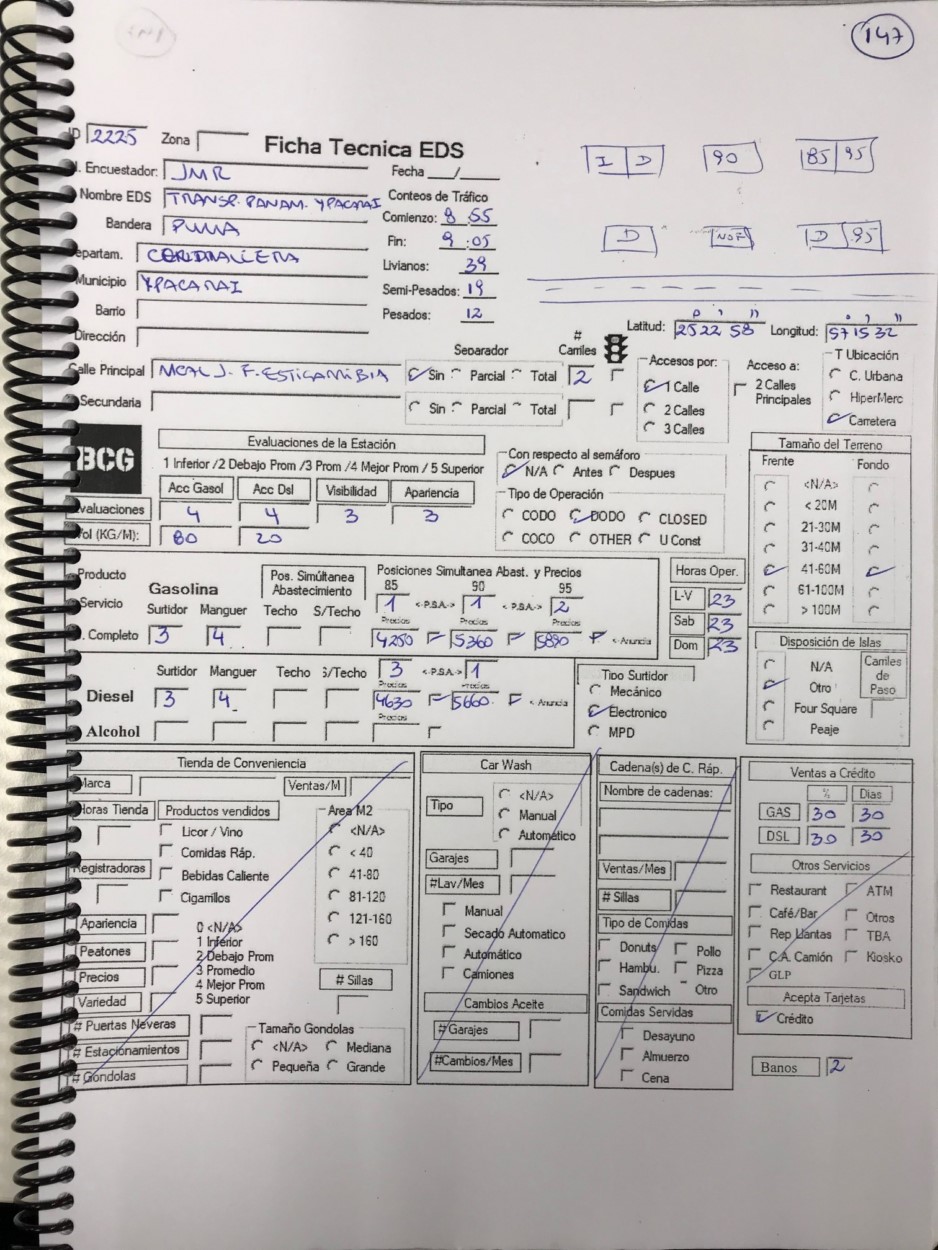 147
ID 2225 Zona Ficha Tecnica EDS
I D 90 85 95
. Encuestador: JMR Fecha __/__
Nombre EDS TRANSP. PANAM. YPACARAI Conteos de Tráfico
Bandera PUMA Comienzo: 8 :55
D NOF D 95
Fin: 9 :05
epartam. CORDILLERA Livianos: 39
Municipio YPACARAI Semi-Pesados: 19
Barrio Pesados: 12
Dirección
Latitud: 25 22 58 Longitud: 57 15 32
Separador # Carriles
Calle Principal MCAL J. F. ESTIGARRIBIA Sin Parcial Total 2
Secundaria Sin Parcial Total
Accesos por:
1 Calle
2 Calles
3 Calles
Acceso a:
2 Calles Principales
T Ubicación
C. Urbana
HiperMerc
Carretera
BCG
Evaluaciones de la Estación
1 Inferior /2 Debajo Prom /3 Prom /4 Mejor Prom / 5 Superior
Acc Gasol Acc Dsl Visibilidad Apariencia
valuaciones 4 4 3 3
ol (KG/M): 80 20
Con respecto al semáforo
N/A Antes Despues
Tipo de Operación
CODO DODO CLOSED
COCO OTHER U Const
Tamaño del Terreno
Frente Fondo
<N/A>
< 20M
21-30M
31-40M
41-60M
61-100M
> 100M
Producto
Servicio
. Completo
Gasolina Pos. Simúltanea Abastecimiento Posiciones Simultanea Abast. y Precios
85 90 95
Surtidor Manguer Techo S/Techo 1 <-P.S.A.-> 1 <-P.S.A.-> 2
Precios Precios Precios
3 4 4250 5360 5890 <-Anuncia
Horas Oper.
L-V 23
Sab 23
Dom 23
Surtidor Manguer Techo S/Techo 3 <-P.S.A.-> 1
Precios Precios
Diesel 3 4 4630 5660 <-Anuncia
Precios
Alcohol
Tipo Surtidor
Mecánico
Electronico
MPD
Disposición de Islas
N/A
Otro
Four Square
Peaje
Carriles de Paso
Tienda de Conveniencia
Marca Ventas/M
Horas Tienda Productos vendidos
Licor / Vino
Comidas Ráp.
Registradoras Bebidas Caliente
Cigarrillos
Area M2
<N/A>
< 40
41-80
81-120
121-160
> 160
Apariencia
Peatones
Precios
Variedad
0 <N/A>
1 Inferior
2 Debajo Prom
3 Promedio
4 Mejor Prom
5 Superior
# Sillas
# Puertas Neveras
# Estacionamientos
# Gondolas
Tamaño Gondolas
<N/A> Mediana
Pequeña Grande
Car Wash
Tipo
<N/A>
Manual
Automático
Garajes
#Lav/Mes
Manual
Secado Automatico
Automático
Camiones
Cambios Aceite
# Garajes
#Cambios/Mes
Cadena(s) de C. Ráp.
Nombre de cadenas:
Ventas/Mes
# Sillas
Tipo de Comidas
Donuts Pollo
Hambu. Pizza
Sandwich Otro
Comidas Servidas
Desayuno
Almuerzo
Cena
Ventas a Crédito
% Dias
GAS 30 30
DSL 30 30
Otros Servicios
Restaurant ATM
Café/Bar Otros
Rep Llantas TBA
C.A. Camión Kiosko
GLP
Acepta Tarjetas
Crédito
Banos 2